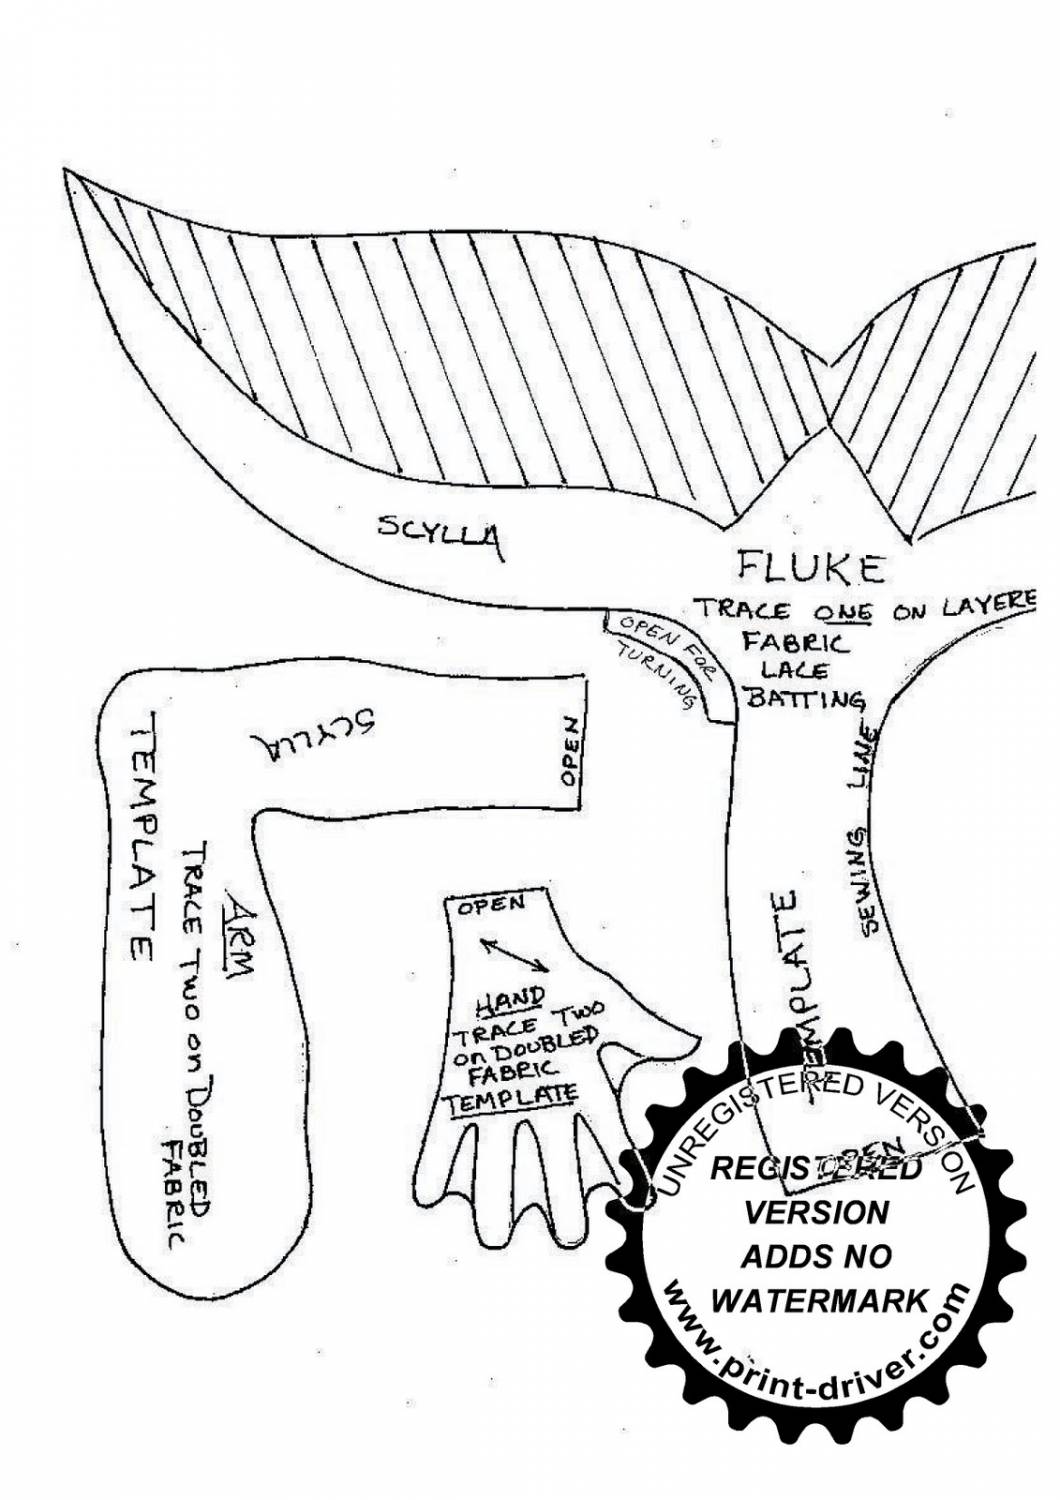 SCYLLA
FLUKE
TRACE ONE ON LAYERE
FABRIC
LACE
BATTING
OPEN FOR
TURNING
SEWING LINE
TEMPLATE
OPEN
SCYLLA
OPEN
TEMPLATE
ARM
TRACE TWO on DOUBLED
FABRIC
OPEN
HAND
TRACE TWO
on DOUBLED
FABRIC
TEMPLATE
UNREGISTERED VERSION
REGISTERED
VERSION
ADDS NO
WATERMARK
www.print-driver.com